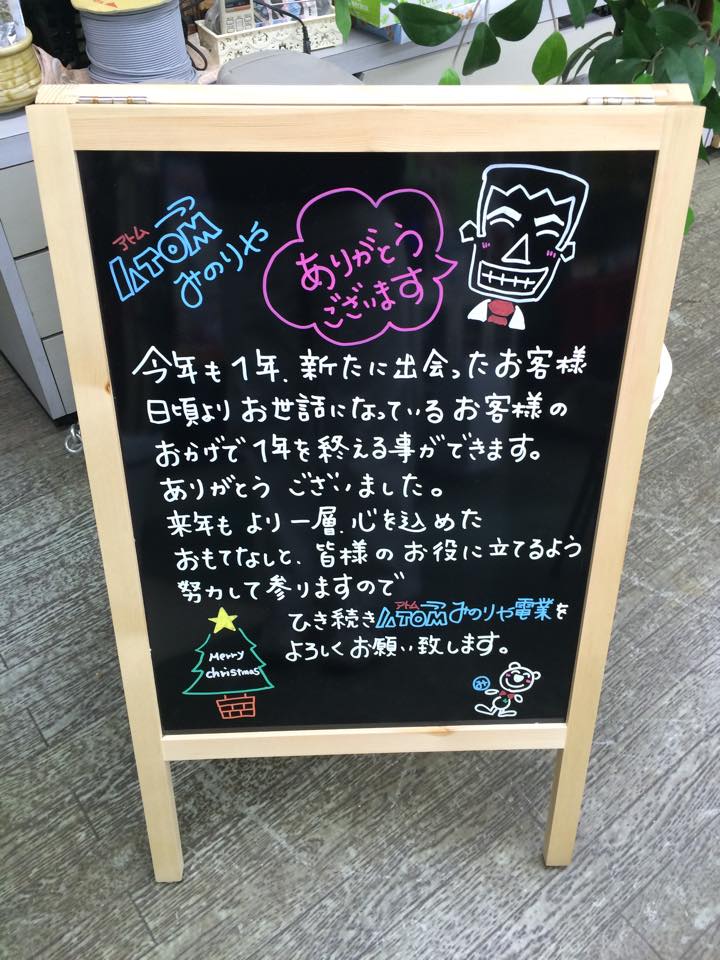 アトム
ATOM
みのりや
ありがとう
ございます
今年も1年、新たに出会ったお客様
日頃よりお世話になっているお客様の
おかげで1年を終える事ができます。
ありがとうございました。
来年もより一層、心を込めた
おもてなしと、皆様のお役に立てるよう
努力して参りますので
アトム
ひき続きATOMみのりや電業を
よろしくお願い致します。
Merry
christmas
み